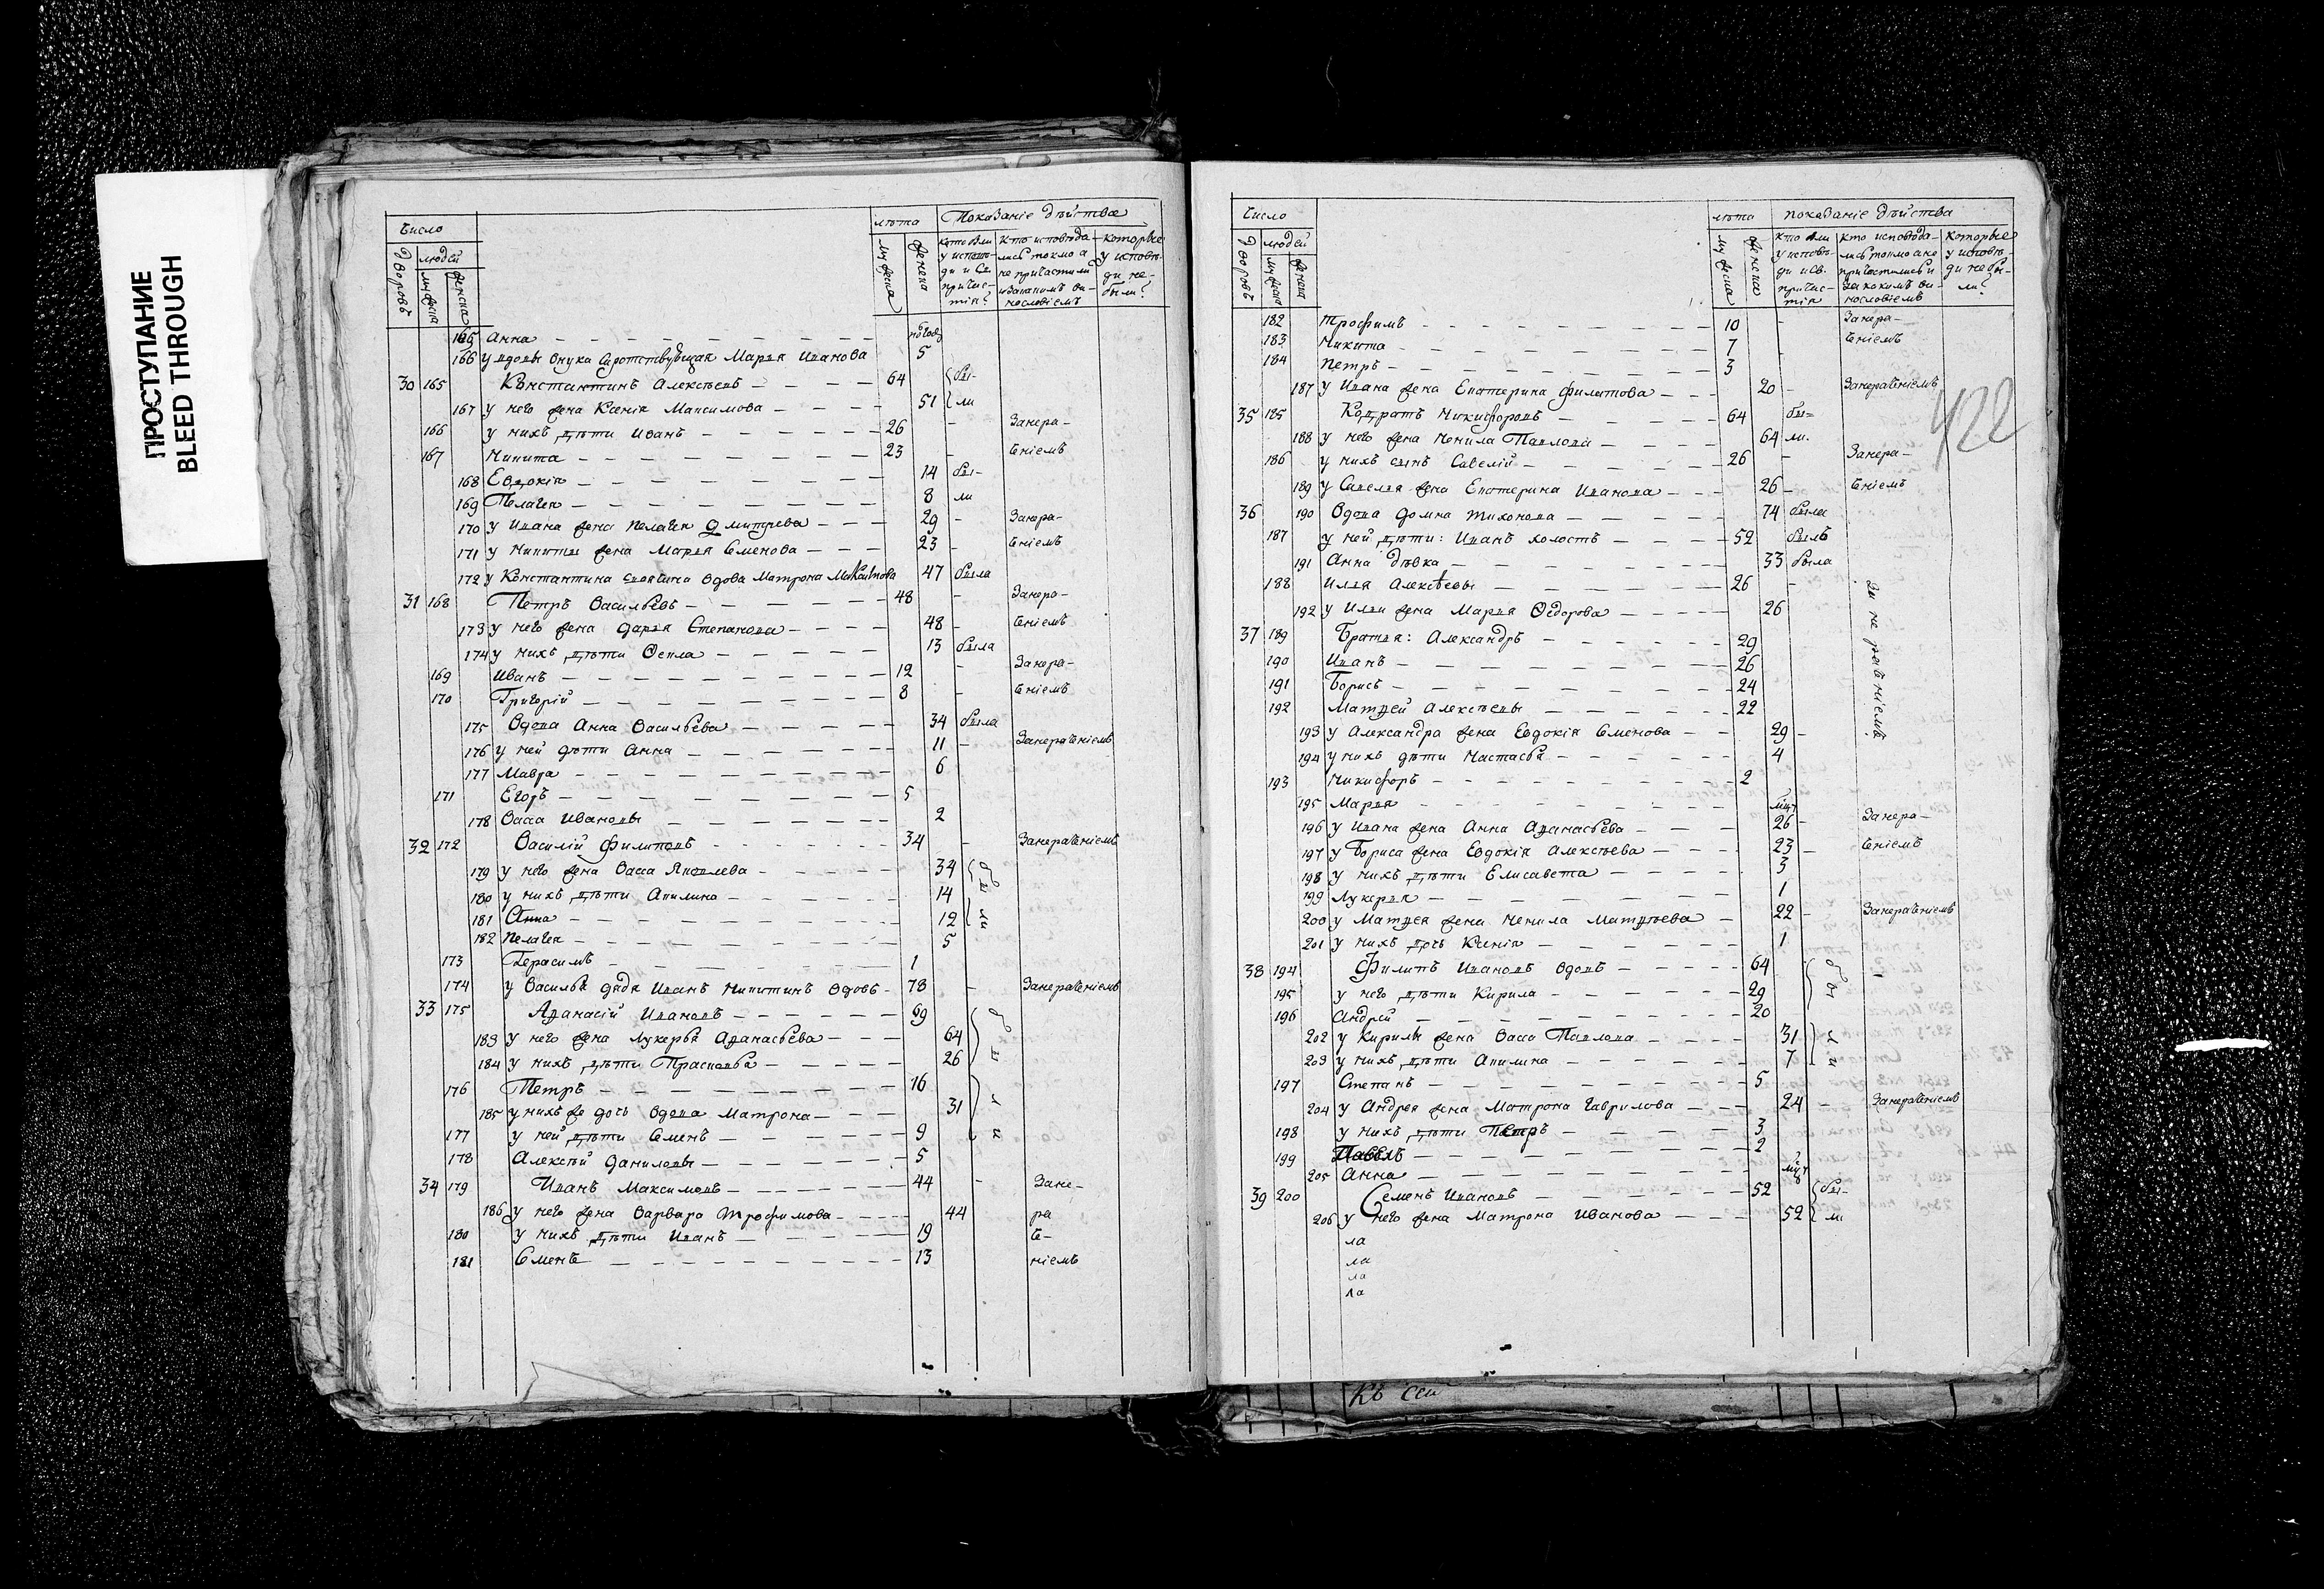 ПРОСТУПАНИЕ
BLEED THROUGH
Число
Дворовъ
людей
мужеска
женска
лѣта
мужеска
женска
Показанiе дѣйства
кто были у исповѣди и Св. причастiя?
кто исповѣдались токмо а не причастили и за какимъ винословiемъ
которые у исповѣди не были?
165 Анна полгод
166 у вдовы внука сиротствующая Марья Иванова 5
30 165 Константинъ Алексѣевъ 64 бы-
167 у него жена Ксенiя Максимова 51 ли
166 у нихъ дѣти Иванъ 26 - Занера-
167 Никита 23 - бѣнiемъ
168 Евдокiя 14 бы-
169 Пелагея 8 ли
170 у Ивана жена Пелагея Дмитрева 29 - Занера-
171 у Никиты жена Марья Семенова 23 - бѣнiемъ
172 у Константина вдова Матрона 47 была
31 168 Петръ Васильевъ 48 - Занера-
173 у него жена Дарья Степанова 48 - бѣнiемъ
174 у нихъ дѣти Фекла 13 была
169 Иванъ 12 - Занера-
170 Григорiй 8 - бѣнiемъ
175 Вдова Анна Васильева 34 была
176 у ней дѣти Анна 11 - Занерадѣнiемъ
177 Мавра 6
171 Егоръ 5
178 Васса Ивановы 2
32 172 Василiй Филиповъ 34 - Занерадѣнiемъ
179 у него жена Васса Яковлева 34 бы
180 у нихъ дѣти Акилина 14
181 Анна 12 ли
182 Пелагея 5
173 Герасимъ 1
174 у Василья дядя Иванъ Никитинъ вдовъ 78 - Занерадѣнiемъ
33 175 Аѳанасiй Ивановъ 69 бы
183 у него жена Лукерья Аѳанасьева 64
184 у нихъ дѣти Прасковья 26
176 Петръ 16 ли
185 у нихъ же дочь вдова Матрона 31
177 у ней дѣти Семенъ 9
178 Алексѣй Даниловы 5
34 179 Иванъ Максимовъ 44 - Зане-
186 у него жена Варвара Трофимова 44 ра
180 у нихъ дѣти Иванъ 19 дѣ-
181 Семенъ 13 нiемъ
Число
Дворовъ
людей
мужеска
женска
лѣта
мужеска
женска
показанiе дѣйства
кто были у исповѣди и св. причастiя
кто исповѣдались токмо а не причастились и за какимъ винословiемъ
Которые у исповѣди не были?
422
182 Трофимъ 10 - Занера-
183 Никита 7 дѣнiемъ
184 Петръ 3
187 у Ивана жена Екатерина Филатова 20 - Занерадѣнiемъ
35 185 Кодратъ Никифоровъ 64 бы-
188 у него жена Ненила Павлова 64 ли.
186 у нихъ сынъ Савелiй 26 - Занера-
189 у Савелья жена Екатерина Иванова 26 - дѣнiемъ
36 190 Вдова Домна Тихонова 74 была
187 у ней дѣти: Иванъ холостъ 52 былъ
191 Анна дѣвка 33 была
188 Илья Алексѣевы 26 -
192 у Ильи жена Марья Ѳедорова 26
за нерадѣнiемъ
37 189 Братья: Александръ 29
190 Иванъ 26
191 Борисъ 24
192 Матвей Алексѣевы 22
193 у Александра жена Евдокiя Семенова 29 -
194 у нихъ дѣти Настасья 4
193 Никифоръ 2
195 Марья
196 у Ивана жена Анна Аѳанасьева 26 - Занера-
197 у Бориса жена Евдокiя Алексѣева 23 - дѣнiемъ
198 у нихъ дѣти Елисавета 3
199 Лукерья 1
200 у Матвея жена Ненила Матвѣева 22 - Занерадѣнiемъ
201 у нихъ дочь Ксенiя 1
38 194 Филипъ Ивановъ вдовъ 64 бы -
195 у него дѣти Кирила 29
196 Андрей 20
202 у Кирилы жена Васса Павлова 31 ли
203 у нихъ дѣти Акилина 7
197 Степанъ 5
204 у Андрея жена Матрона Гаврилова 24 - Занерадѣнiемъ
198 у нихъ дѣти Петръ 3
199 Павелъ 2
205 Анна
39 200 Семенъ Ивановъ 52 бы-
206 у него жена Матрона Иванова 52 ли
ла
ла
ла
ла
Къ сем